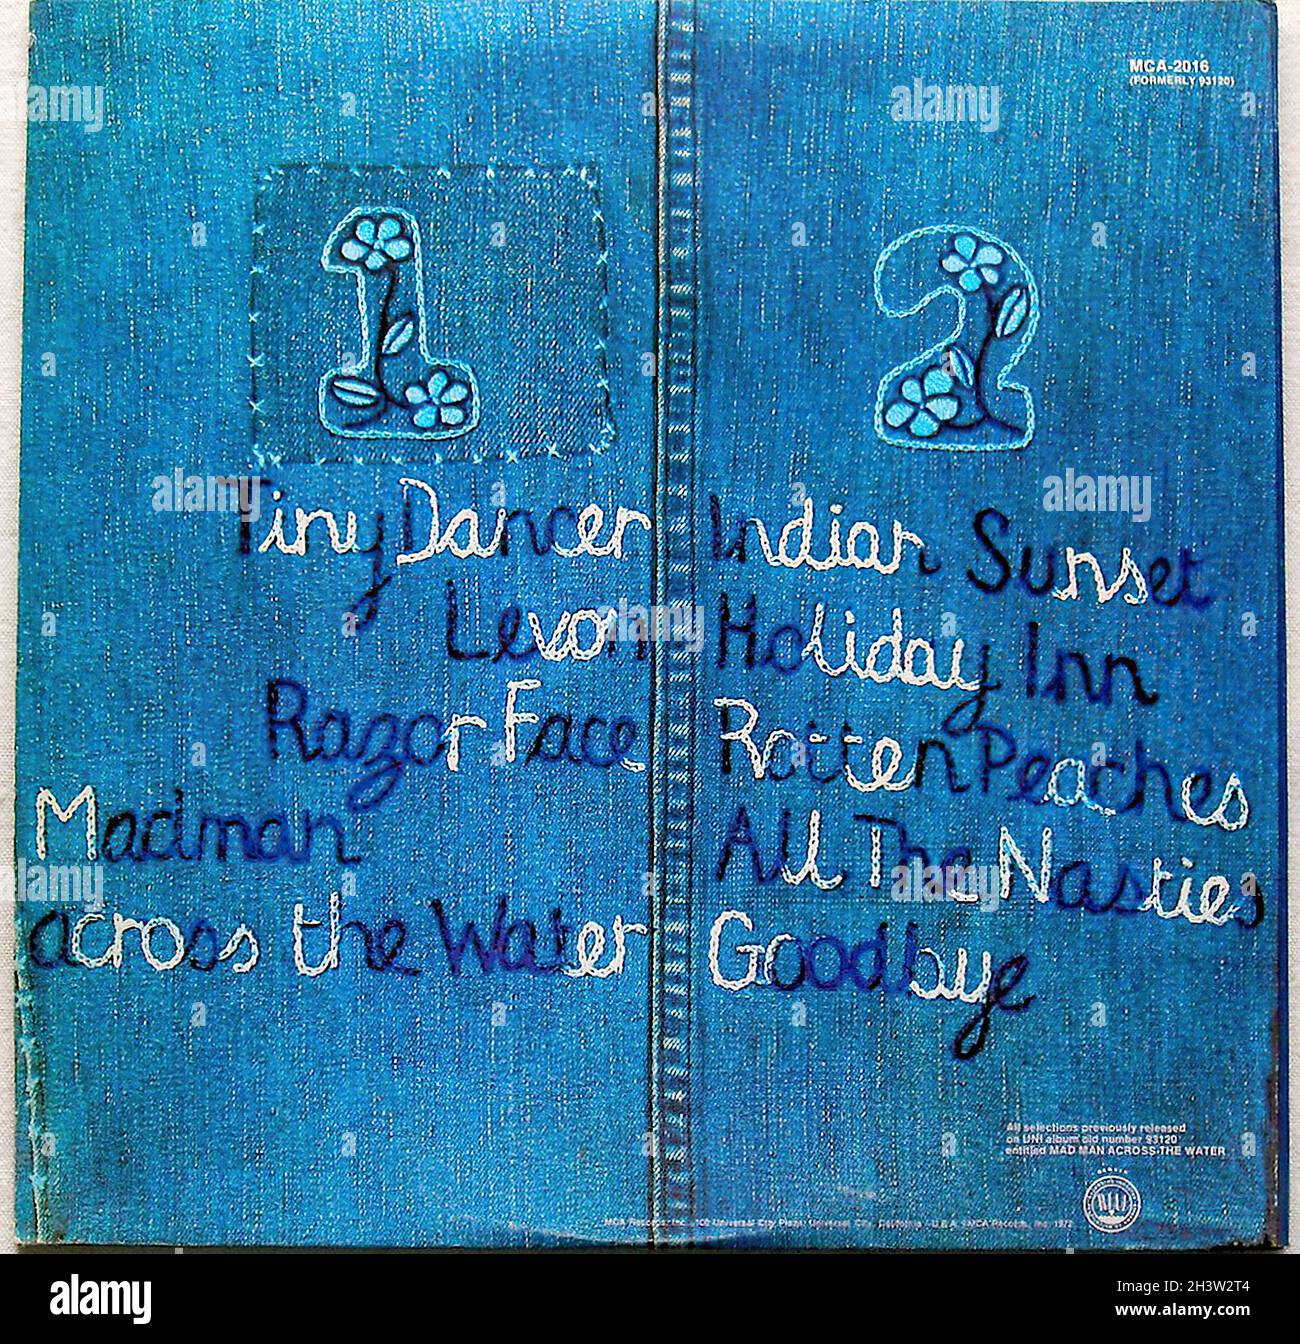 MCA-2016
(FORMERLY 93120)
1
2
Tiny Dancer
Levon
Razor Face
Madman
across the Water
Indian Sunset
Holiday Inn
Rotten Peaches
All The Nasties
Goodbye
All selections previously released
on UNI album old number 93120
entitled MAD MAN ACROSS THE WATER
MCA Records, Inc., 100 Universal City Plaza, Universal City, California - U.S.A. MCA Records, Inc. 1972
alamy
alamy
Image ID: 2H3W2T4
www.alamy.com